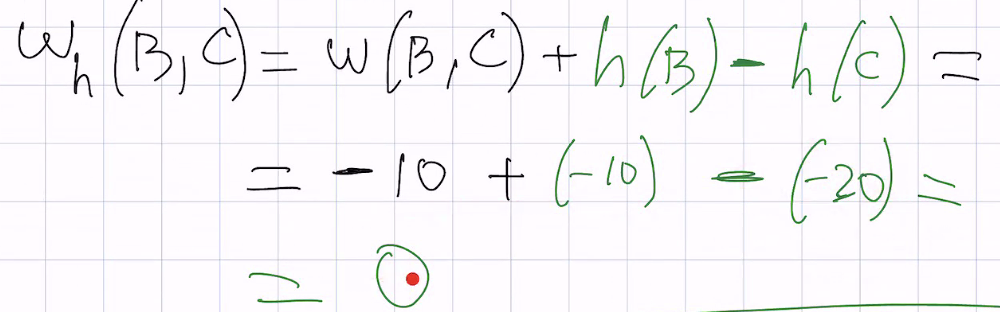 w_h(B,C) = w(B,C) + h(B) - h(C) =
= -10 + (-10) - (-20) =
= 0